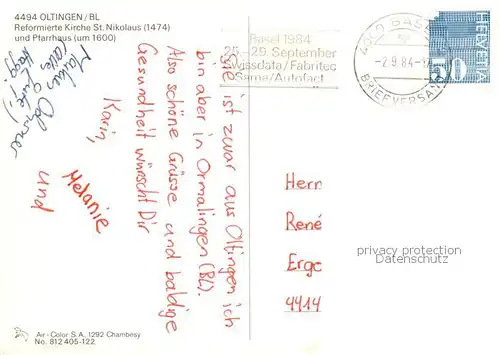 4494 OLTINGEN / BL
Reformierte Kirche St. Nikolaus (1474)
und Pfarrhaus (um 1600)
Basel 1984
25.-29. September
Swissdata/Fabritec
Sama/Autofact
4000 BASEL
-2.9.84-
BRIEFVERSAND
HELVETIA
50
ist zwar aus Oltingen ich
bin aber in Ormalingen (BL).
Also schöne Grüsse und baldige
Gesundheit wünscht Dir
Karin,
Melanie
und
Herr
René
Erge
4414
privacy protection
Datenschutz
Air-Color S.A. 1292 Chambesy
No. 812 405-122